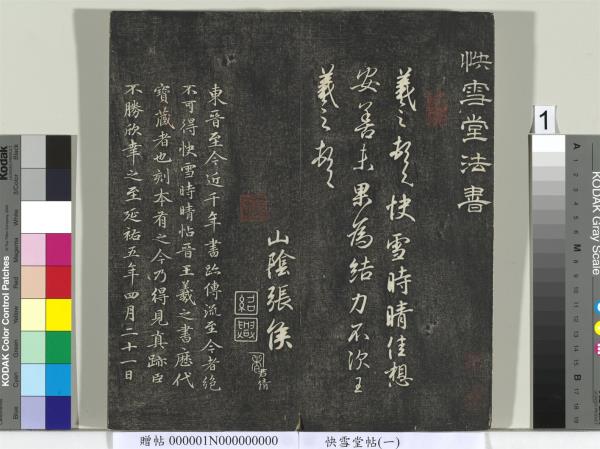 快雪堂法書
羲之頓首快雪時晴佳想
安善未果為結力不次王
羲之頓首
山陰張侯
紹興
君倩
東晉至今近千年書跡傳流至今者絶
不可得快雪時晴帖晉王羲之書歷代
寳藏者也刻本有之今乃得見真跡臣
不勝欣幸之至延祐五年四月二十一日
贈帖 000001N000000000
快雪堂帖(一)
1
Kodak
KODAK Color Control Patches
Black
3/Color
White
Magenta
Red
Yellow
Green
Cyan
Blue
KODAK Gray Scale
A 1 2 3 4 5 6 M 8 9 10 11 12 13 14 15 B 17 18 19